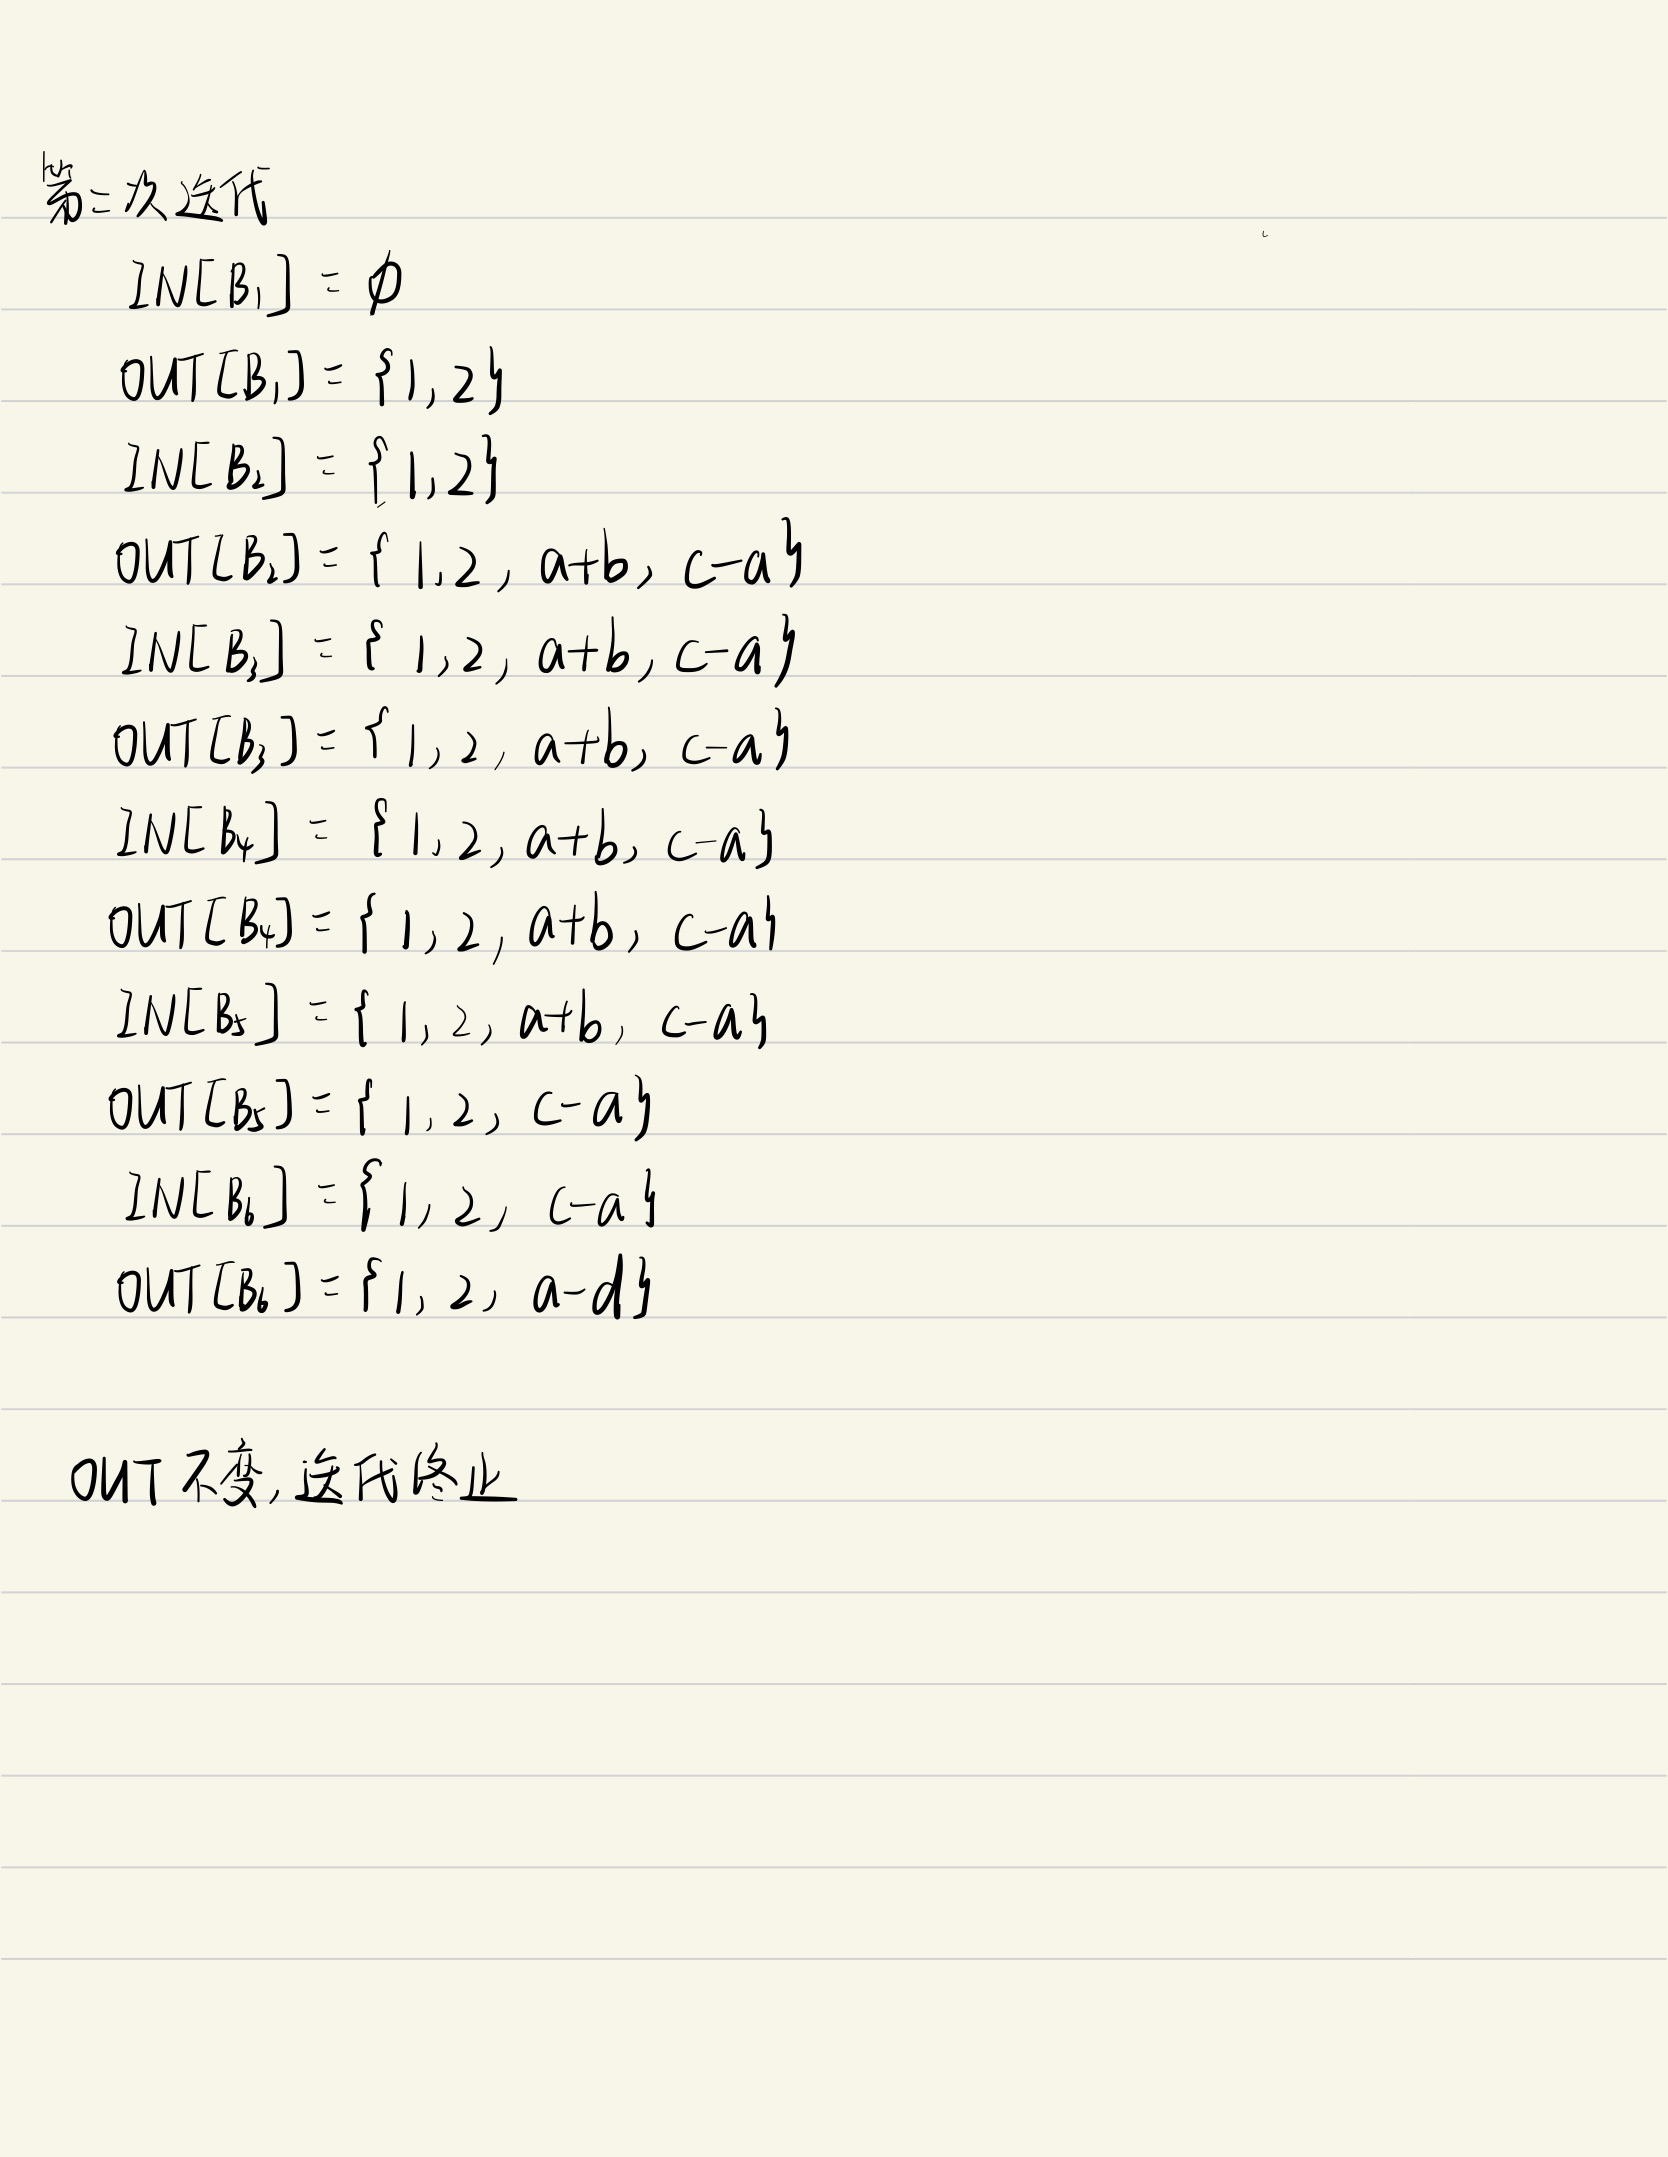 第二次迭代
IN[B₁] = ∅
OUT[B₁] = {1, 2}
IN[B₂] = {1, 2}
OUT[B₂] = {1, 2, a+b, c-a}
IN[B₃] = {1, 2, a+b, c-a}
OUT[B₃] = {1, 2, a+b, c-a}
IN[B₄] = {1, 2, a+b, c-a}
OUT[B₄] = {1, 2, a+b, c-a}
IN[B₅] = {1, 2, a+b, c-a}
OUT[B₅] = {1, 2, c-a}
IN[B₆] = {1, 2, c-a}
OUT[B₆] = {1, 2, a-d}
OUT 不变, 迭代终止